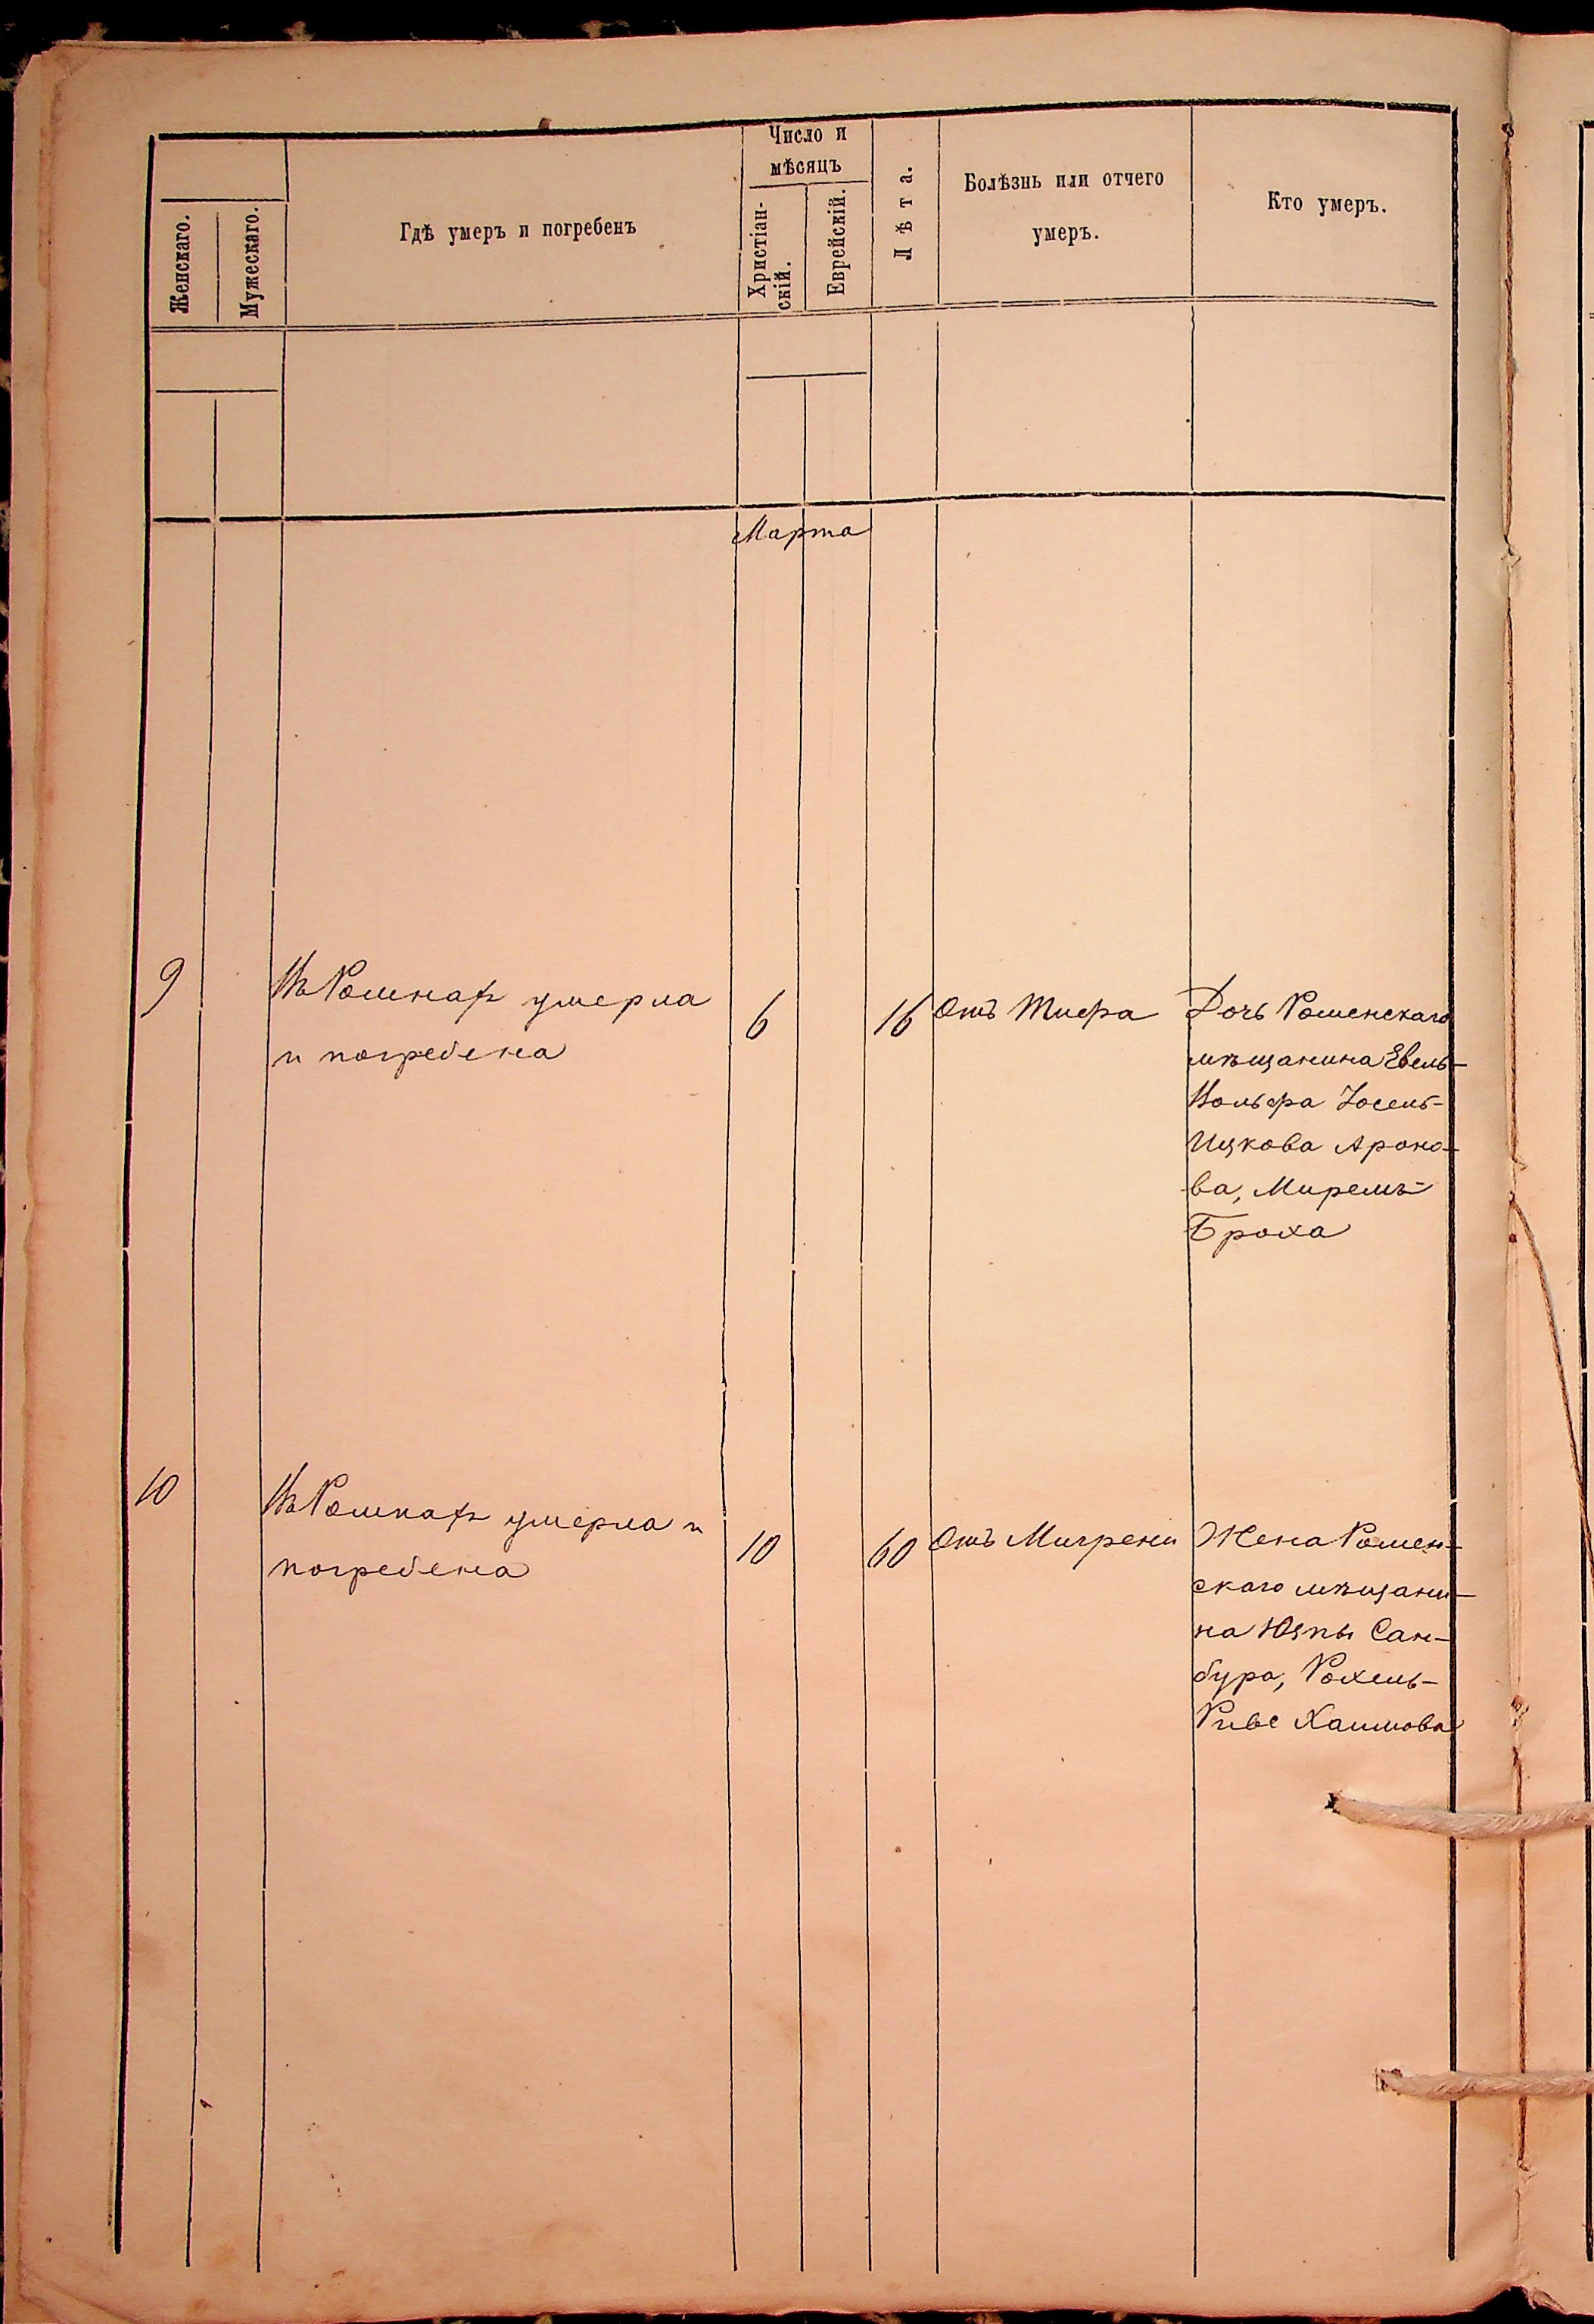 Женскаго.
Мужескаго.
Гдѣ умеръ и погребенъ
Число и
мѣсяцъ
Христіан-
скій.
Еврейскій.
Лѣта.
Болѣзнь или отчего
умеръ.
Кто умеръ.
Марта
9
Въ Ромнахъ умерла
и погребена
6
16
Отъ Тифа
Дочь Роменскаго
мѣщанина Евель-
Вольфа Іосель-
Ицкова Ароно-
ва, Мирель-
Броха
10
Въ Ромнахъ умерла и
погребена
10
60
Отъ Мигрени
Жена Ромен-
скаго мѣщани-
на Юзпы Сан-
бура, Рохель-
Риве Хаимова